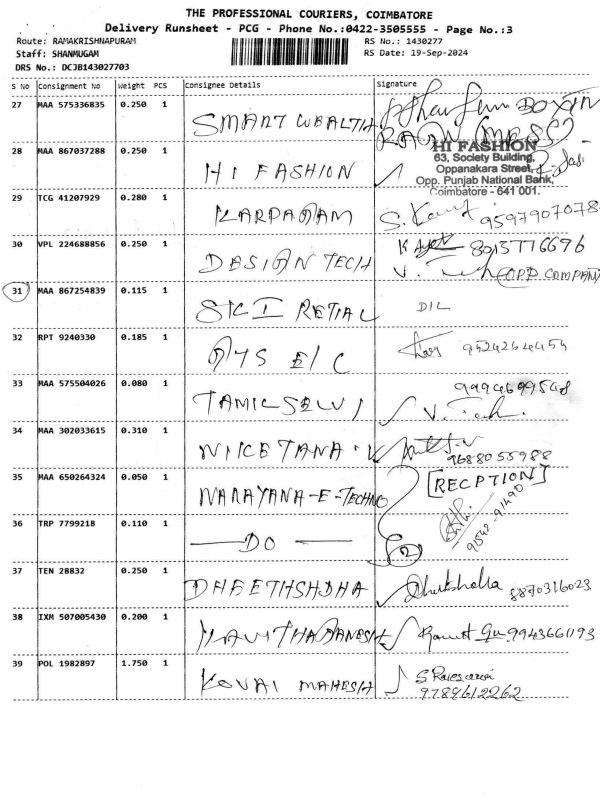 THE PROFESSIONAL COURIERS, COIMBATORE
Delivery Runsheet - PCG - Phone No.:0422-3505555 - Page No.:3
Route: RAMAKRISHNAPURAM
RS No.: 1430277
Staff: SHANMUGAM
RS Date: 19-Sep-2024
DRS No.: DCJB143027703
S No Consignment No Weight PCS Consignee Details Signature
27 MAA 575336835 0.250 1
28 MAA 867037288 0.250 1 HI FASHION
HI FASHION
63, Society Building,
Oppanakara Street,
Opp. Punjab National Bank,
Coimbatore - 641 001.
29 TCG 41207929 0.280 1 KARPAGAM
9597907078
30 VPL 224688856 0.250 1 DESIGN TECH
8013776696
(OPP COMPANY
31 MAA 867254839 0.115 1 SKI RETIAL DIL
32 RPT 9240330 0.185 1 AYS E/C 9524264454
33 MAA 575504026 0.080 1 TAMILSELVI
34 MAA 302033615 0.310 1 NIKETANA.V
9688055988
35 MAA 650264324 0.050 1 NARAYANA-E-TECHNO
[RECPTION]
36 TRP 7799218 0.110 1 DO 2
37 TEN 28832 0.250 1 DHEETHSHDHA
8870316023
38 IXM 507005430 0.200 1 KAVITHAGANESH
9943661193
39 POL 1982897 1.750 1 KOVAI MAHESH
9789612262